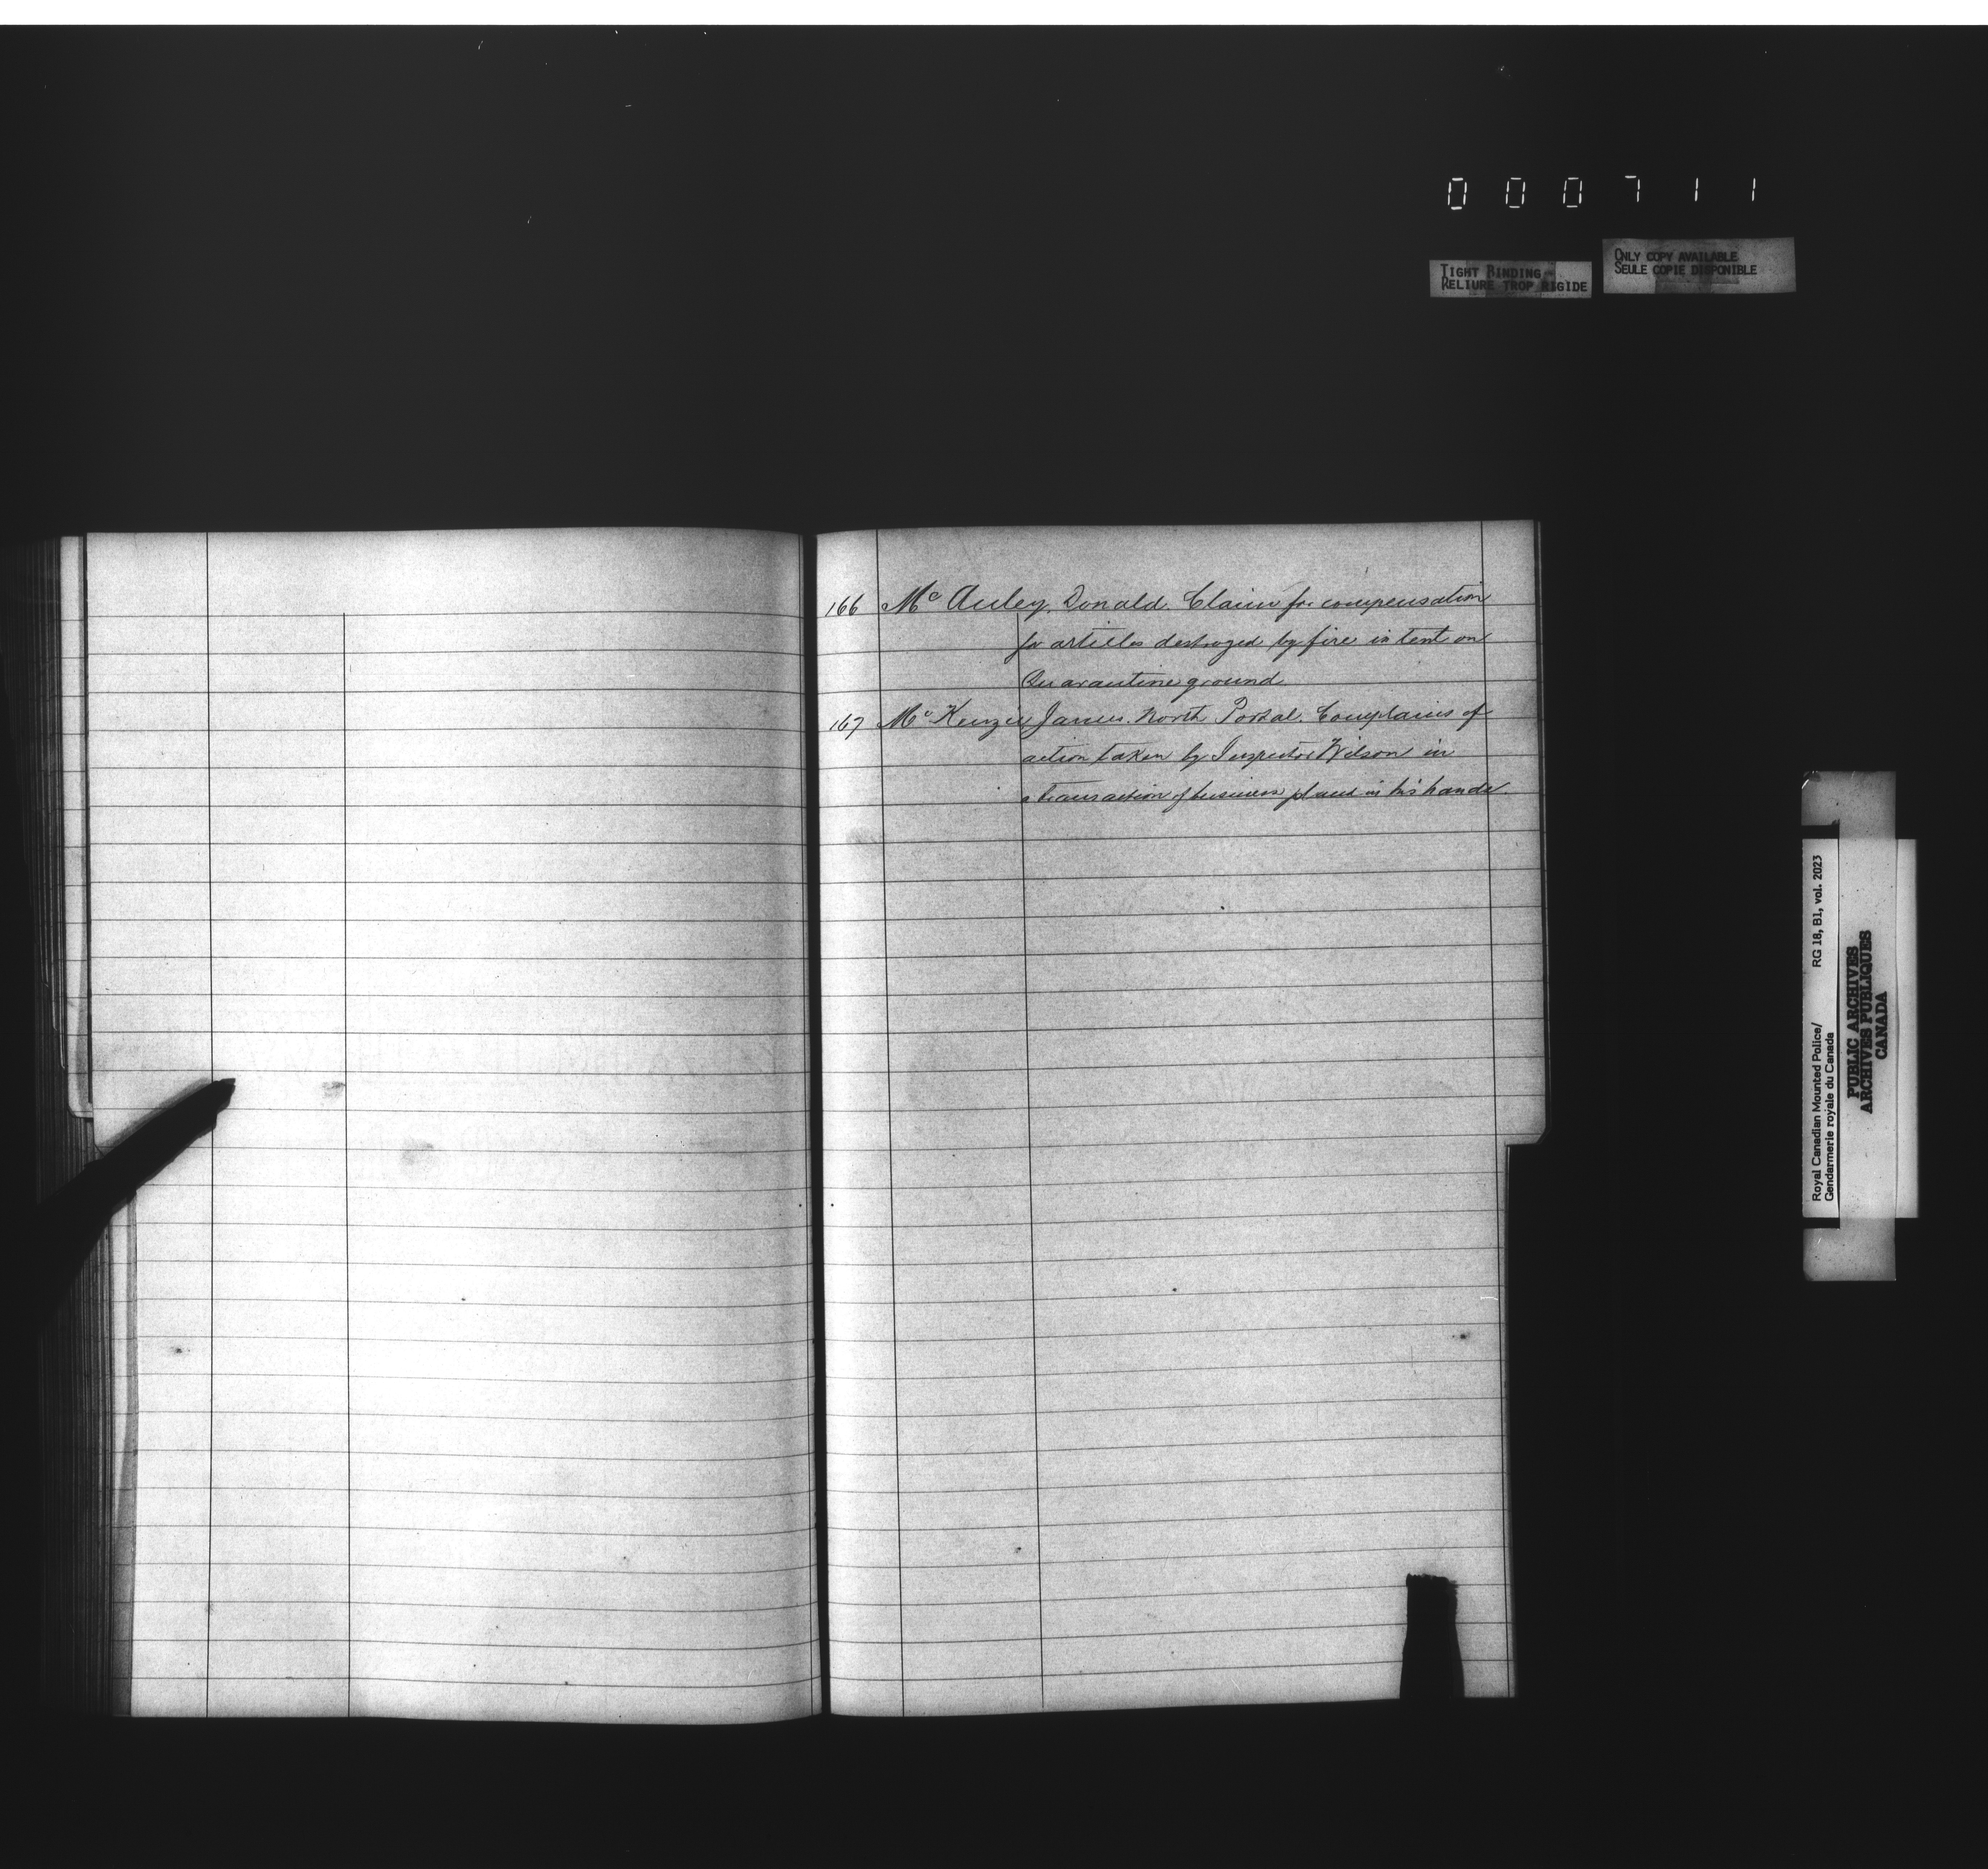 000711
TIGHT BINDING
RELIURE TROP RIGIDE
ONLY COPY AVAILABLE
SEULE COPIE DISPONIBLE
166 Mc Auley, Donald. Claim for compensation
for articles destroyed by fire in tent on
Quarantine ground.
167 Mc Kenzie James. North Portal. Complains of
action taken by Inspector Wilson in
a transaction of business placed in his hands.
Royal Canadian Mounted Police/ RG 18, B1, vol. 2023
Gendarmerie royale du Canada
PUBLIC ARCHIVES
ARCHIVES PUBLIQUES
CANADA